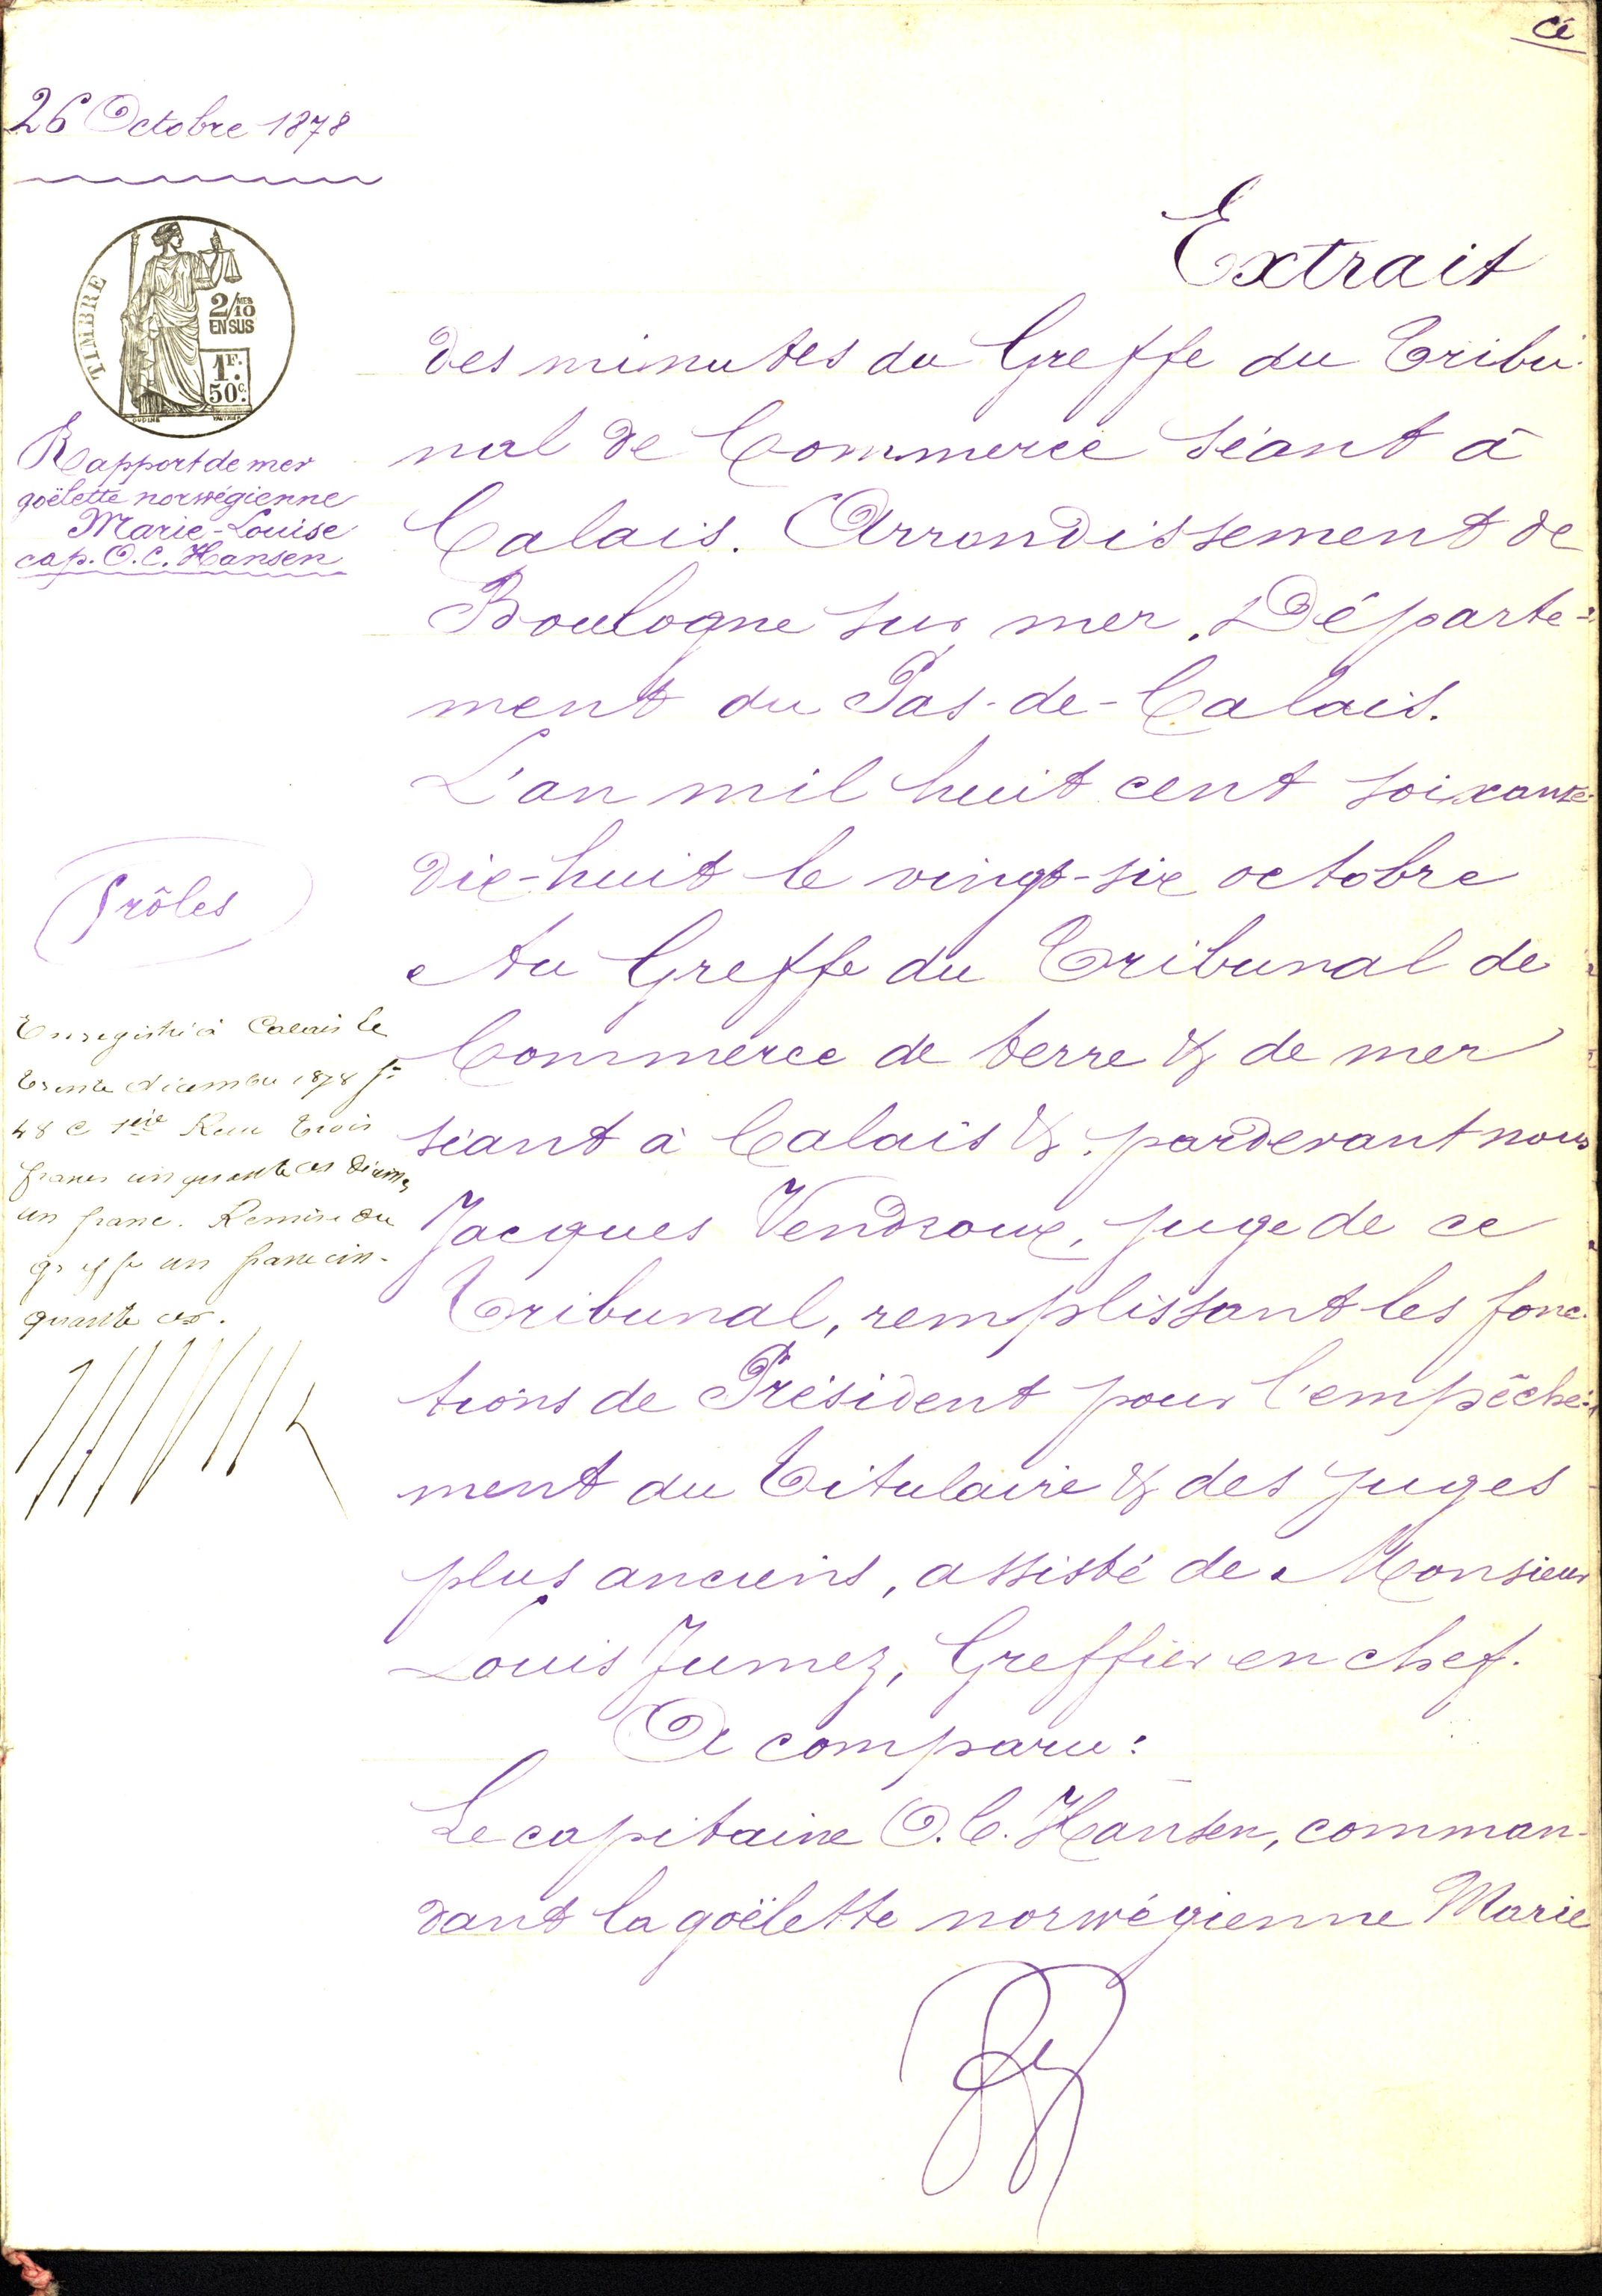 Cé
26 Octobre 1878
TIMBRE
2/10 MES
EN SUS
1F.
50c.
Rapport de mer
goëlette norwégienne
Marie-Louise
cap. O. C. Hansen
rôles
Enregistré à Calais le
trente décembre 1878 fo
48 c Reçu trois
francs cinquante cs décimes
un franc. Remise du
greffe un franc cin-
quante cs.
Extrait
des minutes du Greffe du Tribu-
nal de Commerce séant à
Calais. Arrondissement de
Boulogne sur mer. Départe=
ment du Pas-de-Calais.
L'an mil huit cent soixante-
dix-huit le vingt-six octobre
Au Greffe du Tribunal de
Commerce de terre & de mer
séant à Calais & pardevant nous
Jacques Vendroux, juge de ce
Tribunal, remplissant les fonc-
tions de Président pour l'empêche-
ment du Titulaire & des juges
plus anciens, assisté de Monsieur
Louis Jumez, Greffier en chef.
A comparu:
Le capitaine O. C. Hansen, comman-
dant la goëlette norwégienne Marie